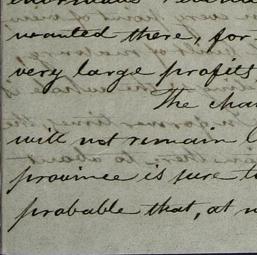 wanted there, for
very large profits
The cha
will not remain
province is sure to
probable that, at